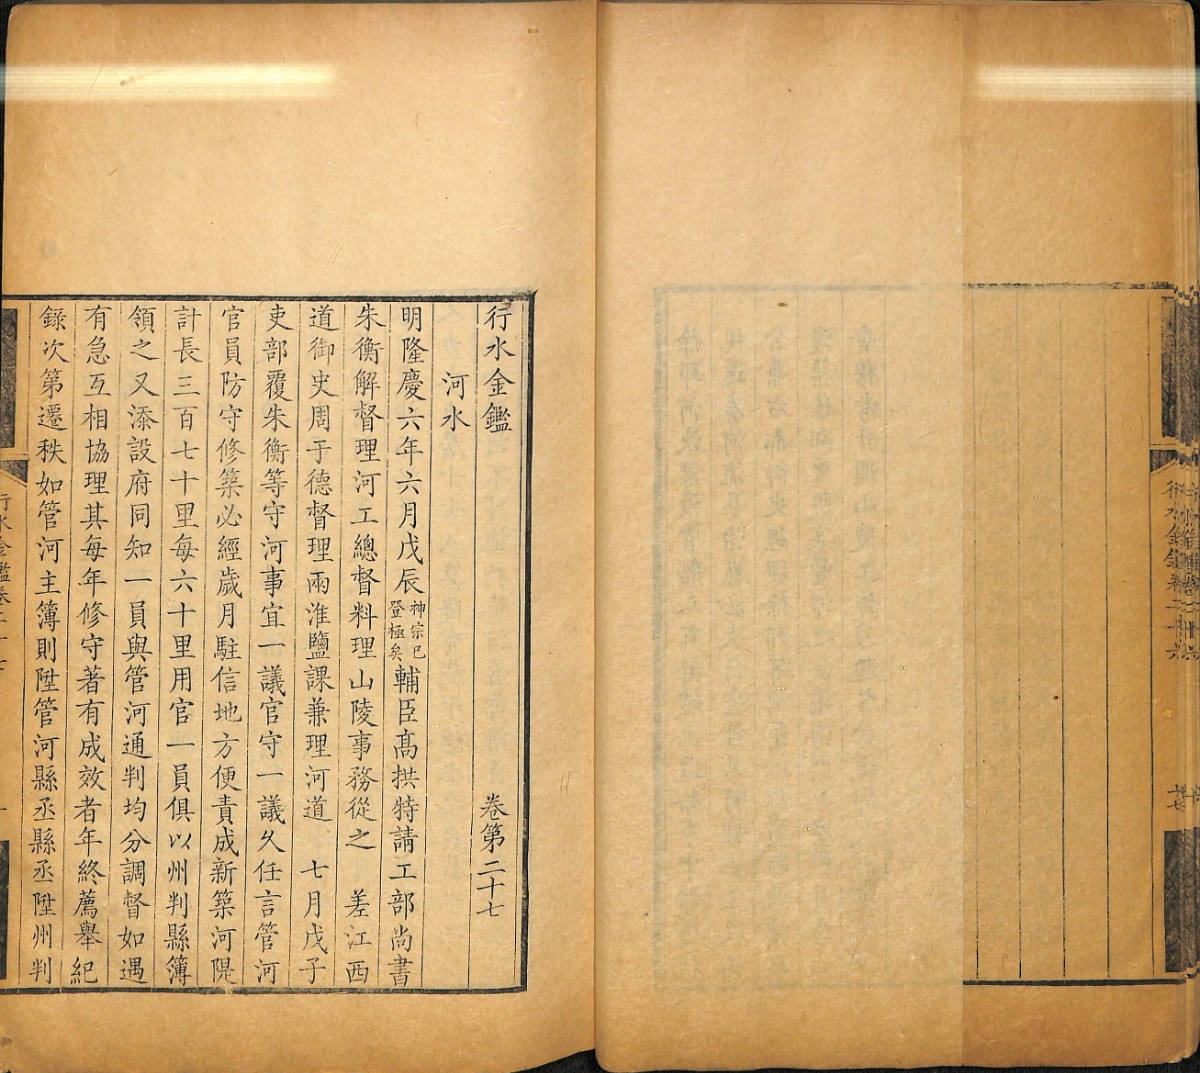 行水金鑑 卷第二十七
河水
明隆慶六年六月戊辰神宗已登極矣輔臣高拱特請工部尚書
朱衡解督理河工總督料理山陵事務從之 差江西
道御史周于德督理兩淮鹽課兼理河道 七月戊子
吏部覆朱衡等守河事宜一議官守一議久任言管河
官員防守修築必經歲月駐信地方便責成新築河隄
計長三百七十里每六十里用官一員俱以州判縣簿
領之又添設府同知一員與管河通判均分調督如遇
有急互相協理其每年修守著有成效者年終薦舉紀
錄次第遷秩如管河主簿則陞管河縣丞縣丞陞州判